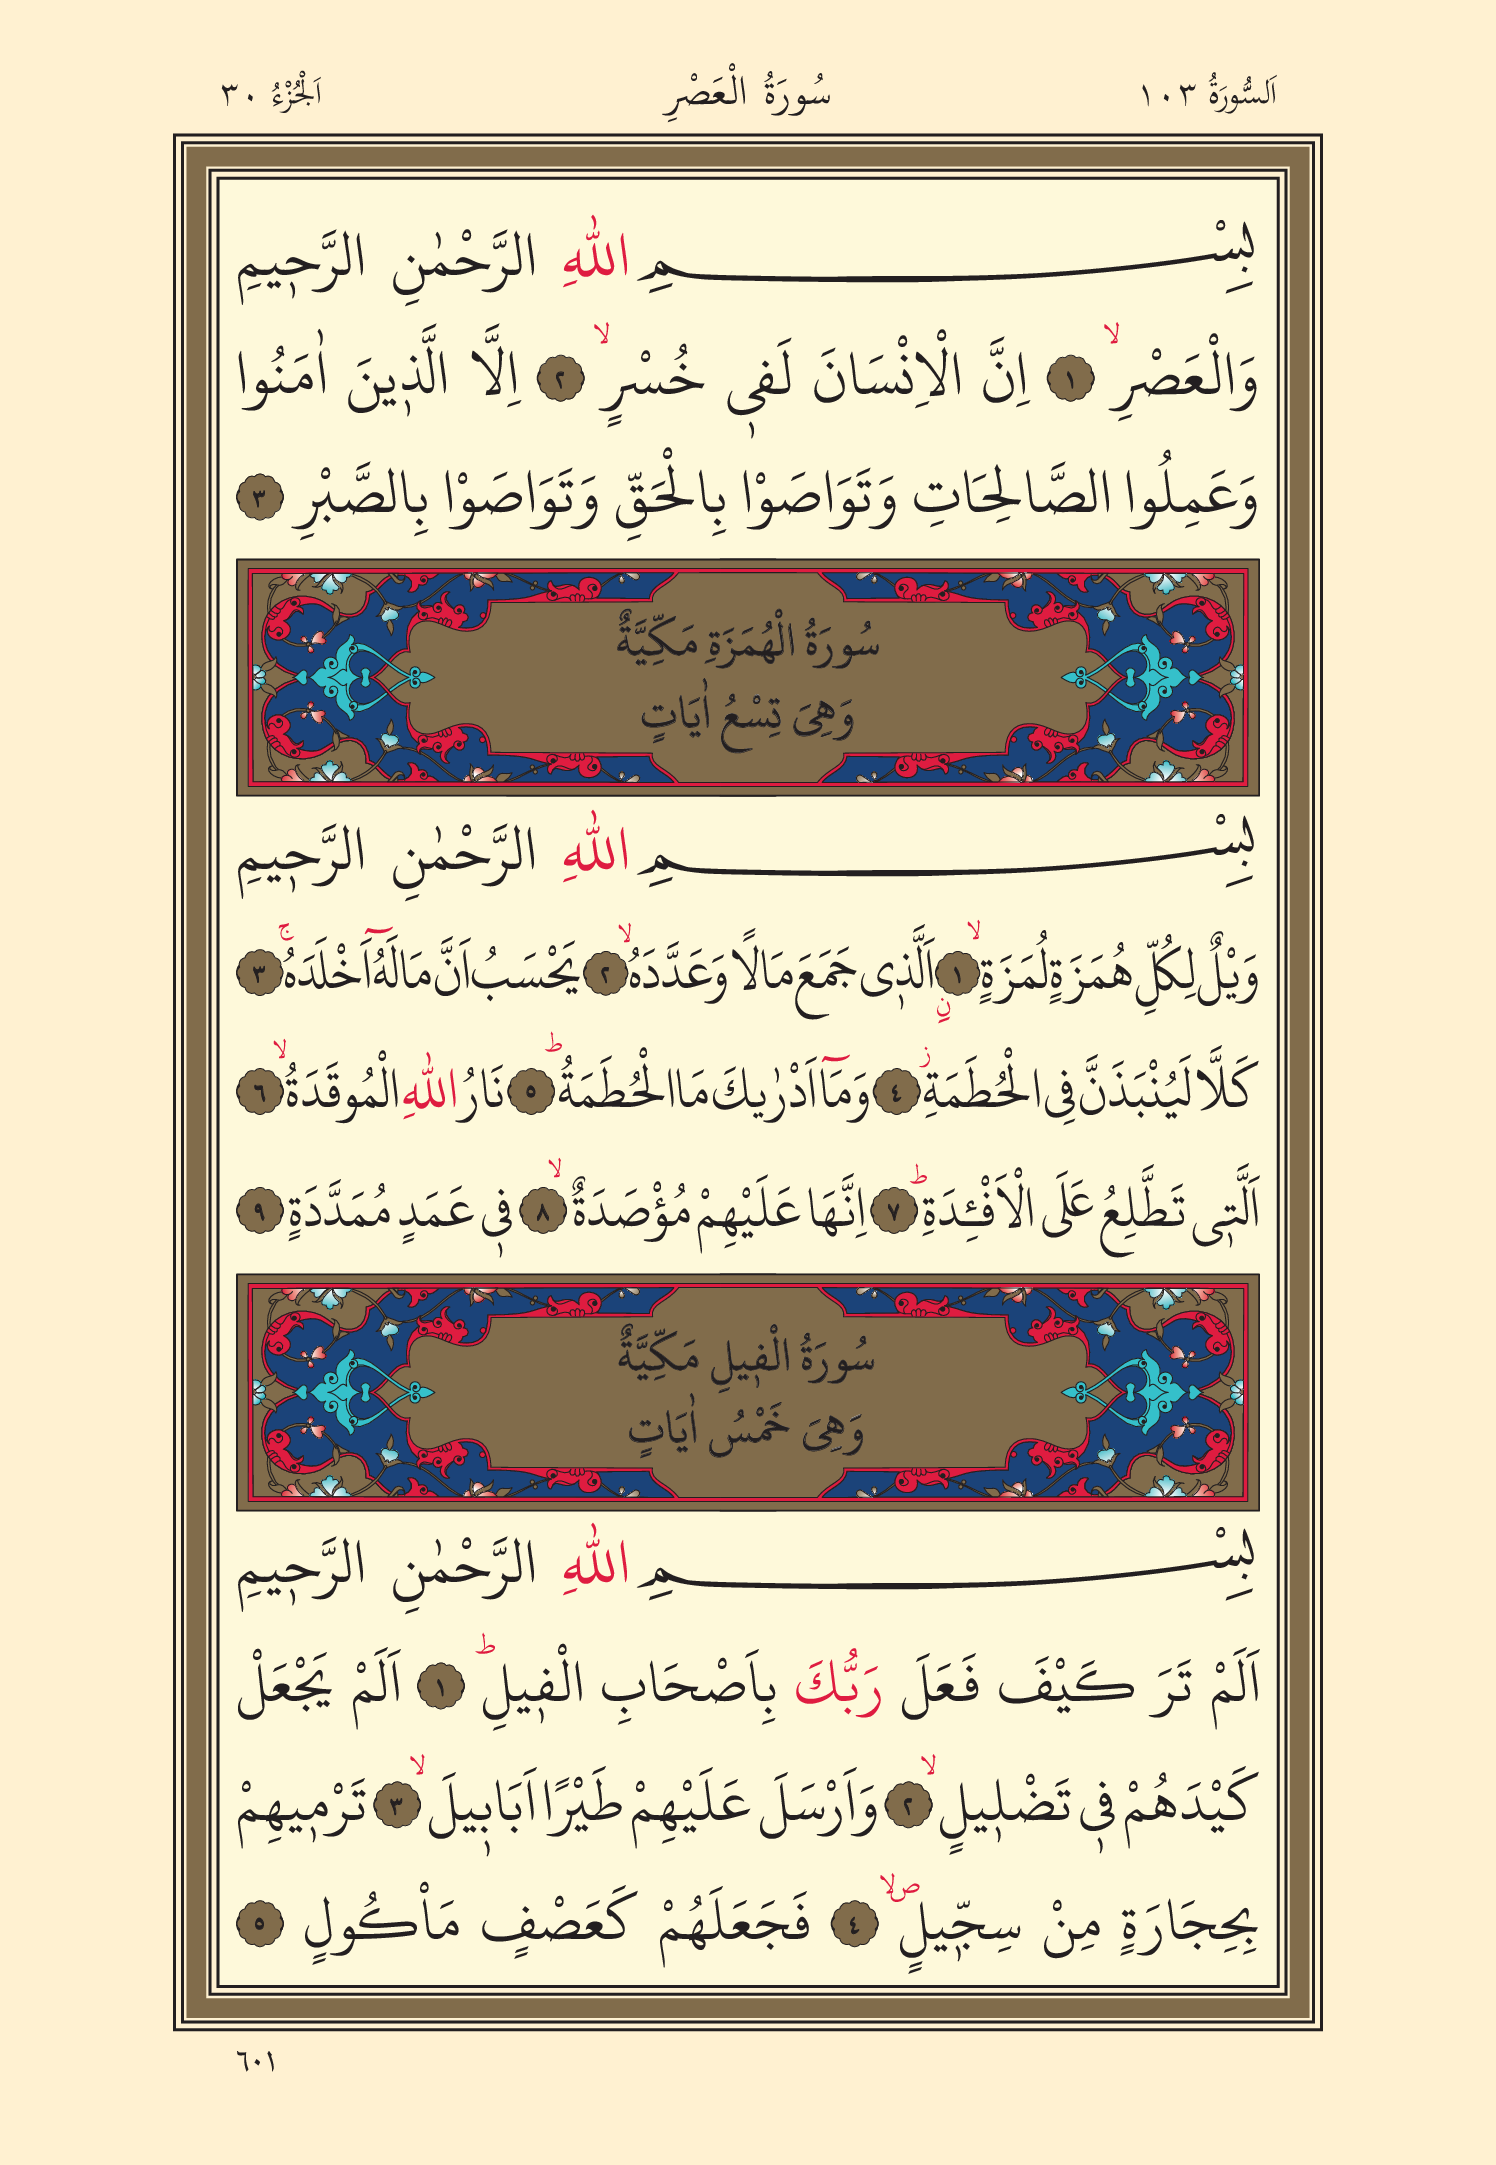 اَلسُّورَةُ ١٠٣ سُورَةُ الْعَصْرِ اَلْجُزْءُ ٣٠
بِسْمِ اللّٰهِ الرَّحْمٰنِ الرَّحٖيمِ
وَالْعَصْرِۙ ١ اِنَّ الْاِنْسَانَ لَفٖى خُسْرٍۙ ٢ اِلَّا الَّذٖينَ اٰمَنُوا
وَعَمِلُوا الصَّالِحَاتِ وَتَوَاصَوْا بِالْحَقِّ وَتَوَاصَوْا بِالصَّبْرِ ٣
سُورَةُ الْهُمَزَةِ مَكِّيَّةٌ
وَهِىَ تِسْعُ اٰيَاتٍ
بِسْمِ اللّٰهِ الرَّحْمٰنِ الرَّحٖيمِ
وَيْلٌ لِكُلِّ هُمَزَةٍ لُمَزَةٍۙ ١ نِ اَلَّذٖى جَمَعَ مَالًا وَعَدَّدَهُۙ ٢ يَحْسَبُ اَنَّ مَالَهُٓ اَخْلَدَهُۚ ٣
كَلَّا لَيُنْبَذَنَّ فِى الْحُطَمَةِؗ ٤ وَمَٓا اَدْرٰيكَ مَا الْحُطَمَةُؕ ٥ نَارُ اللّٰهِ الْمُوقَدَةُۙ ٦
اَلَّتٖى تَطَّلِعُ عَلَى الْاَفْـِٔدَةِؕ ٧ اِنَّهَا عَلَيْهِمْ مُؤْصَدَةٌۙ ٨ فٖى عَمَدٍ مُمَدَّدَةٍ ٩
سُورَةُ الْفٖيلِ مَكِّيَّةٌ
وَهِىَ خَمْسُ اٰيَاتٍ
بِسْمِ اللّٰهِ الرَّحْمٰنِ الرَّحٖيمِ
اَلَمْ تَرَ كَيْفَ فَعَلَ رَبُّكَ بِاَصْحَابِ الْفٖيلِؕ ١ اَلَمْ يَجْعَلْ
كَيْدَهُمْ فٖى تَضْلٖيلٍۙ ٢ وَاَرْسَلَ عَلَيْهِمْ طَيْرًا اَبَابٖيلَۙ ٣ تَرْمٖيهِمْ
بِحِجَارَةٍ مِنْ سِجّٖيلٍۙۖ ٤ فَجَعَلَهُمْ كَعَصْفٍ مَاْكُولٍ ٥
٦٠١